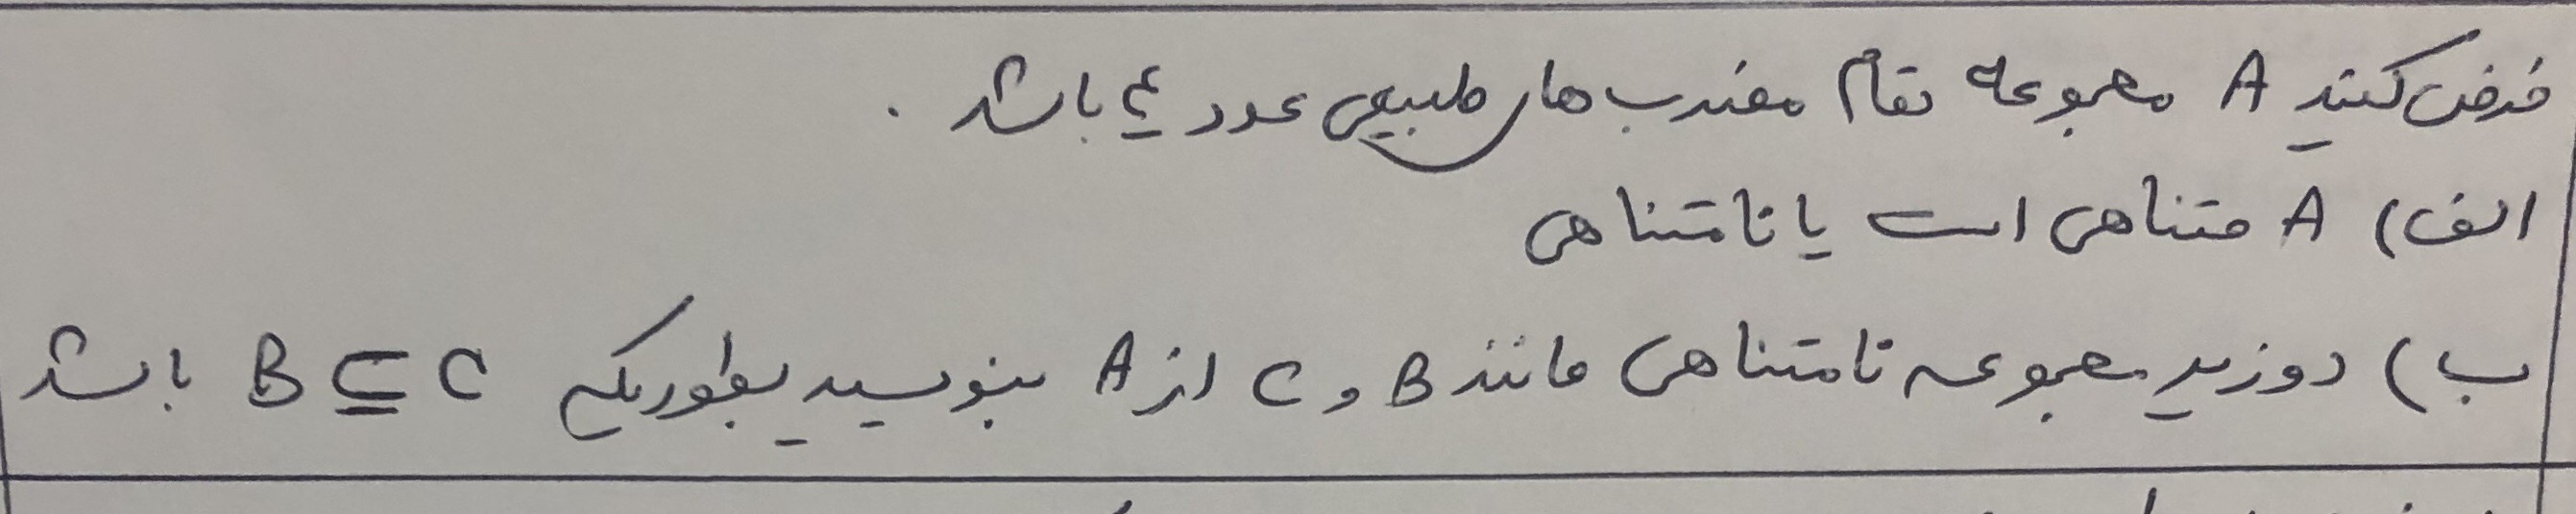 فرض کنید A مجموعه تمام مضرب های طبیعی عدد ۴ باشد .
الف) A متناهی است یا نامتناهی
ب) دو زیر مجموعه نامتناهی مانند B و C از A بنویسید بطوریکه B ⊆ C باشد